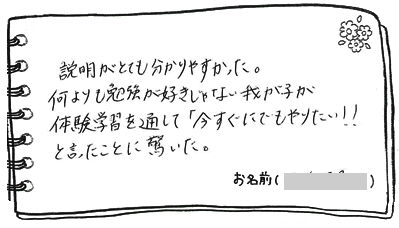 説明がとても分かりやすかった。
何よりも勉強が好きじゃない我が子が
体験学習を通して「今すぐにでもやりたい!!
と言ったことに驚いた。
お名前( )